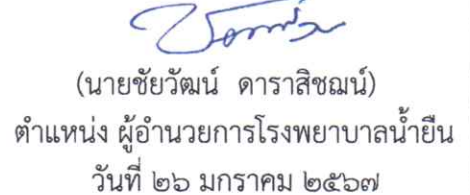 (นายชัยวัฒน์ ดาราสิชฌน์)
ตำแหน่ง ผู้อำนวยการโรงพยาบาลน้ำยืน
วันที่ ๒๖ มกราคม ๒๕๖๗